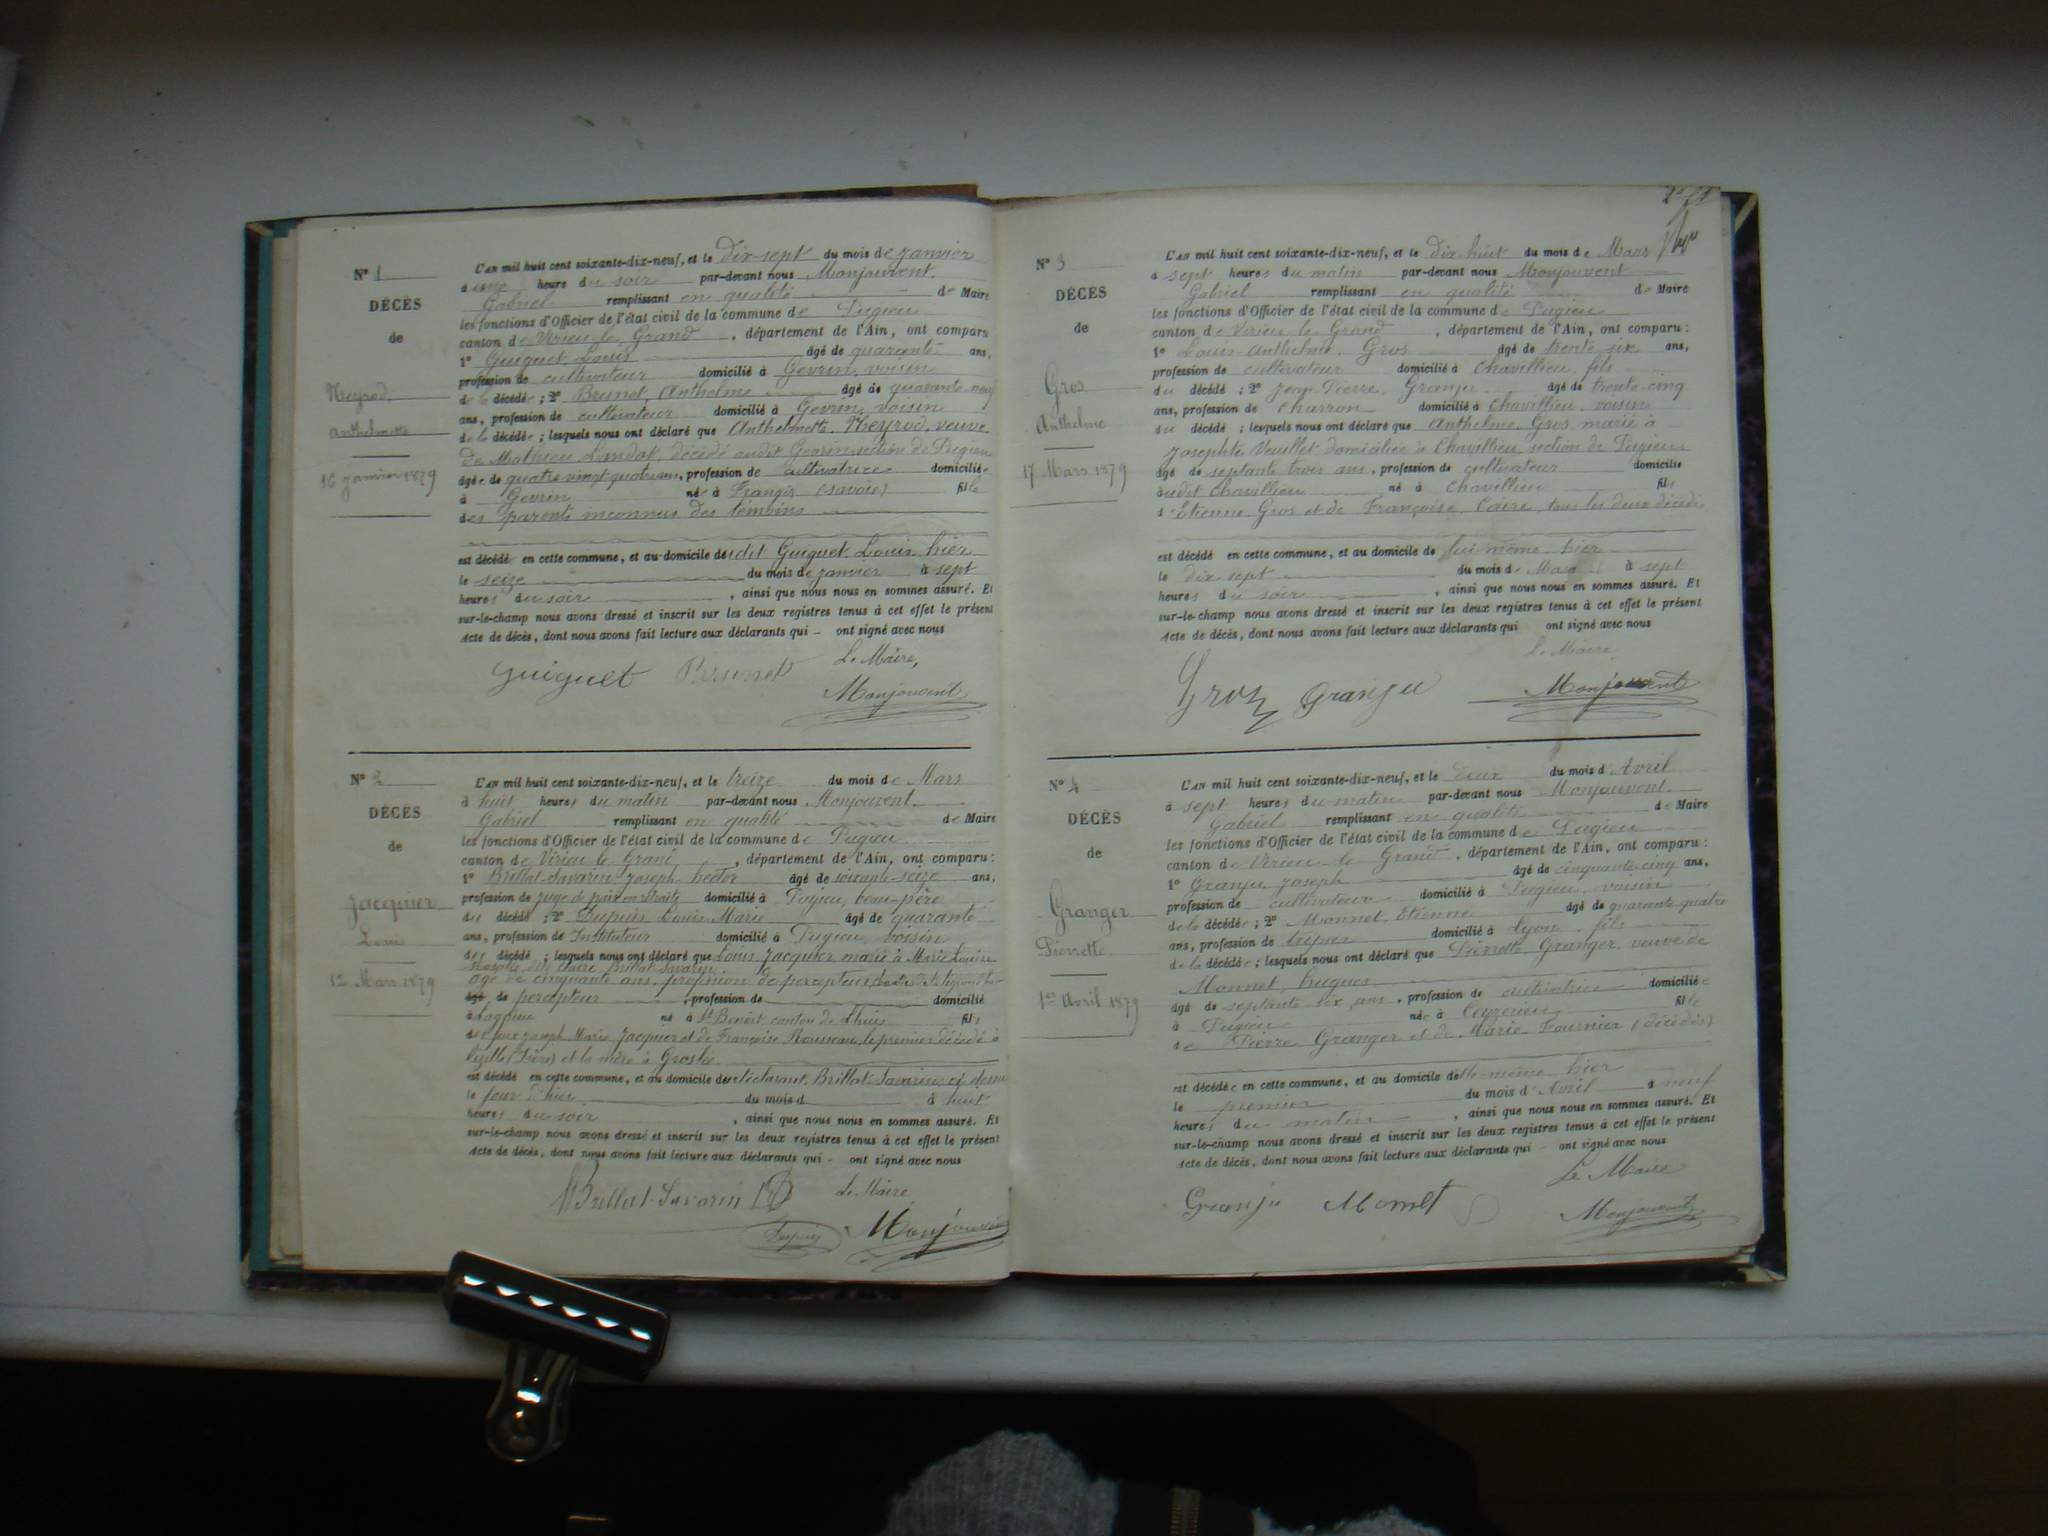 N° 1
DÉCÈS
de
Meyrod
anthelmette
16 janvier 1879
L'AN mil huit cent soixante-dix-neuf, et le Dix-sept du mois de janvier
à une heure du soir par-devant nous Monjouvent
Gabriel remplissant en qualité de Maire
les fonctions d'Officier de l'état civil de la commune de Pugieu
canton de Virieu le Grand, département de l'Ain, ont comparu
1° Guiguet Louis âgé de quarante ans,
profession de cultivateur domicilié à Gevrin, voisin
de la décédée ; 2° Brunet, Anthelme âgé de quarante neuf
ans, profession de cultivateur domicilié à Gevrin, voisin
de la décédée ; lesquels nous ont déclaré que Anthelmette Meyrod, veuve
de Mathieu Landot, décédé audit Gevrin section de Pugieu
âgée de quatre vingt quatre ans, profession de cultivatrice domiciliée
à Gevrin née à Frangis (Savoie) fille
des parents inconnus des témoins
est décédé en cette commune, et au domicile dudit Guiguet Louis, hier
le seize du mois de janvier à sept
heures du soir, ainsi que nous nous en sommes assuré. Et
sur-le-champ nous avons dressé et inscrit sur les deux registres tenus à cet effet le présent
Acte de décès, dont nous avons fait lecture aux déclarants qui – ont signé avec nous
Le Maire,
Guiguet Brunet Monjouvent
N° 2
DÉCÈS
de
Jacquier
Louis
12 Mars 1879
L'AN mil huit cent soixante-dix-neuf, et le treize du mois de Mars
à huit heures du matin par-devant nous Monjouvent
Gabriel remplissant en qualité de Maire
les fonctions d'Officier de l'état civil de la commune de Pugieu
canton de Virieu le Grand, département de l'Ain, ont comparu :
1° Brillat-Savarin, Joseph hector âgé de soixante-seize ans,
profession de juge de paix en retraite domicilié à Pugieu, beau-père
du décédé ; 2° Dupuis Louis Marie âgé de quarante
ans, profession de Instituteur domicilié à Pugieu, voisin
du décédé ; lesquels nous ont déclaré que Louis Jacquier marié à Marie Louise
Claire Brillat-Savarin
âgé de cinquante ans, profession de percepteur,
âgé de percepteur, profession de domicilié
à Lagnieu né à St Benoit, canton de Lhuis fils
de Joseph Marie Jacquier et de Françoise Rousseau, le premier décédé à
(Isère) et la mère à Groslée
est décédé en cette commune, et au domicile du déclarant, Brillat-Savarin, ci dessus
le jour d'hier du mois d à huit
heures du soir, ainsi que nous nous en sommes assuré. Et
sur-le-champ nous avons dressé et inscrit sur les deux registres tenus à cet effet le présent
Acte de décès, dont nous avons fait lecture aux déclarants qui – ont signé avec nous
Le Maire
Brillat-Savarin Dupuis Monjouvent
N° 3
DÉCÈS
de
Gros
Anthelme
17 Mars 1879
L'AN mil huit cent soixante-dix-neuf, et le dix huit du mois de Mars
à sept heures du matin par-devant nous Monjouvent
Gabriel remplissant en qualité de Maire
les fonctions d'Officier de l'état civil de la commune de Pugieu
canton de Virieu le Grand, département de l'Ain, ont comparu :
1° Louis-Anthelme Gros âgé de trente six ans,
profession de cultivateur domicilié à Chavillieu, fils
du décédé ; 2° Jean Pierre Granger âgé de trente-cinq
ans, profession de charron domicilié à Chavillieu, voisin
du décédé ; lesquels nous ont déclaré que Anthelme Gros, marié à
Josephte Veuillet domiciliée à Chavillieu, section de Pugieu
âgé de septante trois ans, profession de cultivateur domicilié
audit Chavillieu né à Chavillieu fils
d'Etienne Gros et de Françoise Caire, tous les deux décédés
est décédé en cette commune, et au domicile de lui-même, hier
le dix sept du mois de Mars à sept
heures du soir, ainsi que nous nous en sommes assuré. Et
sur-le-champ nous avons dressé et inscrit sur les deux registres tenus à cet effet le présent
Acte de décès, dont nous avons fait lecture aux déclarants qui ont signé avec nous
Le Maire
Gros Granger Monjouvent
N° 4
DÉCÈS
de
Granger
Pierrette
1er Avril 1879
L'AN mil huit cent soixante-dix-neuf, et le deux du mois d'Avril
à sept heures du matin par-devant nous Monjouvent
Gabriel remplissant en qualité de Maire
les fonctions d'Officier de l'état civil de la commune de Pugieu
canton de Virieu le Grand, département de l'Ain, ont comparu :
1° Granju Joseph âgé de cinquante cinq ans,
profession de cultivateur domicilié à Pugieu, voisin
de la décédée ; 2° Monnet, Etienne âgé de quarante quatre
ans, profession de domicilié à Lyon, fils
de la décédée ; lesquels nous ont déclaré que Pierrette Granger, veuve de
Monnet, hugues
âgé de septante six ans, profession de cultivatrice domiciliée
à Pugieu née à Ceyzerieu fille
de Pierre Granger et de Marie Fournier (décédés)
est décédée en cette commune, et au domicile d'elle-même hier
le premier du mois d'Avril à neuf
heures du matin, ainsi que nous nous en sommes assuré. Et
sur-le-champ nous avons dressé et inscrit sur les deux registres tenus à cet effet le présent
Acte de décès, dont nous avons fait lecture aux déclarants qui – ont signé avec nous
Le Maire
Granju Monnet Monjouvent